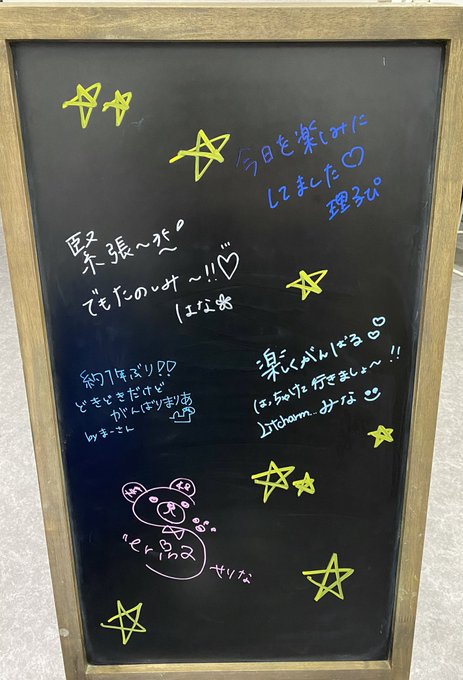 今日を楽しみに
してました♡
理るぴ
緊張〜
でもたのしみ〜!!♡
はな
約1年ぶり!!
どきどきだけど
がんばりまりあ
by まーさん
楽しくがんばる
はっちゃけて行きましょ〜!!
Litcharm... みな
erina
せりな